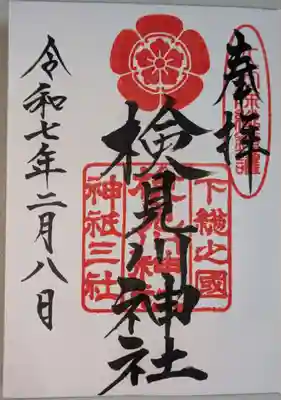 奉拝
検見川神社
下總之國
神祇三社
令和七年二月八日